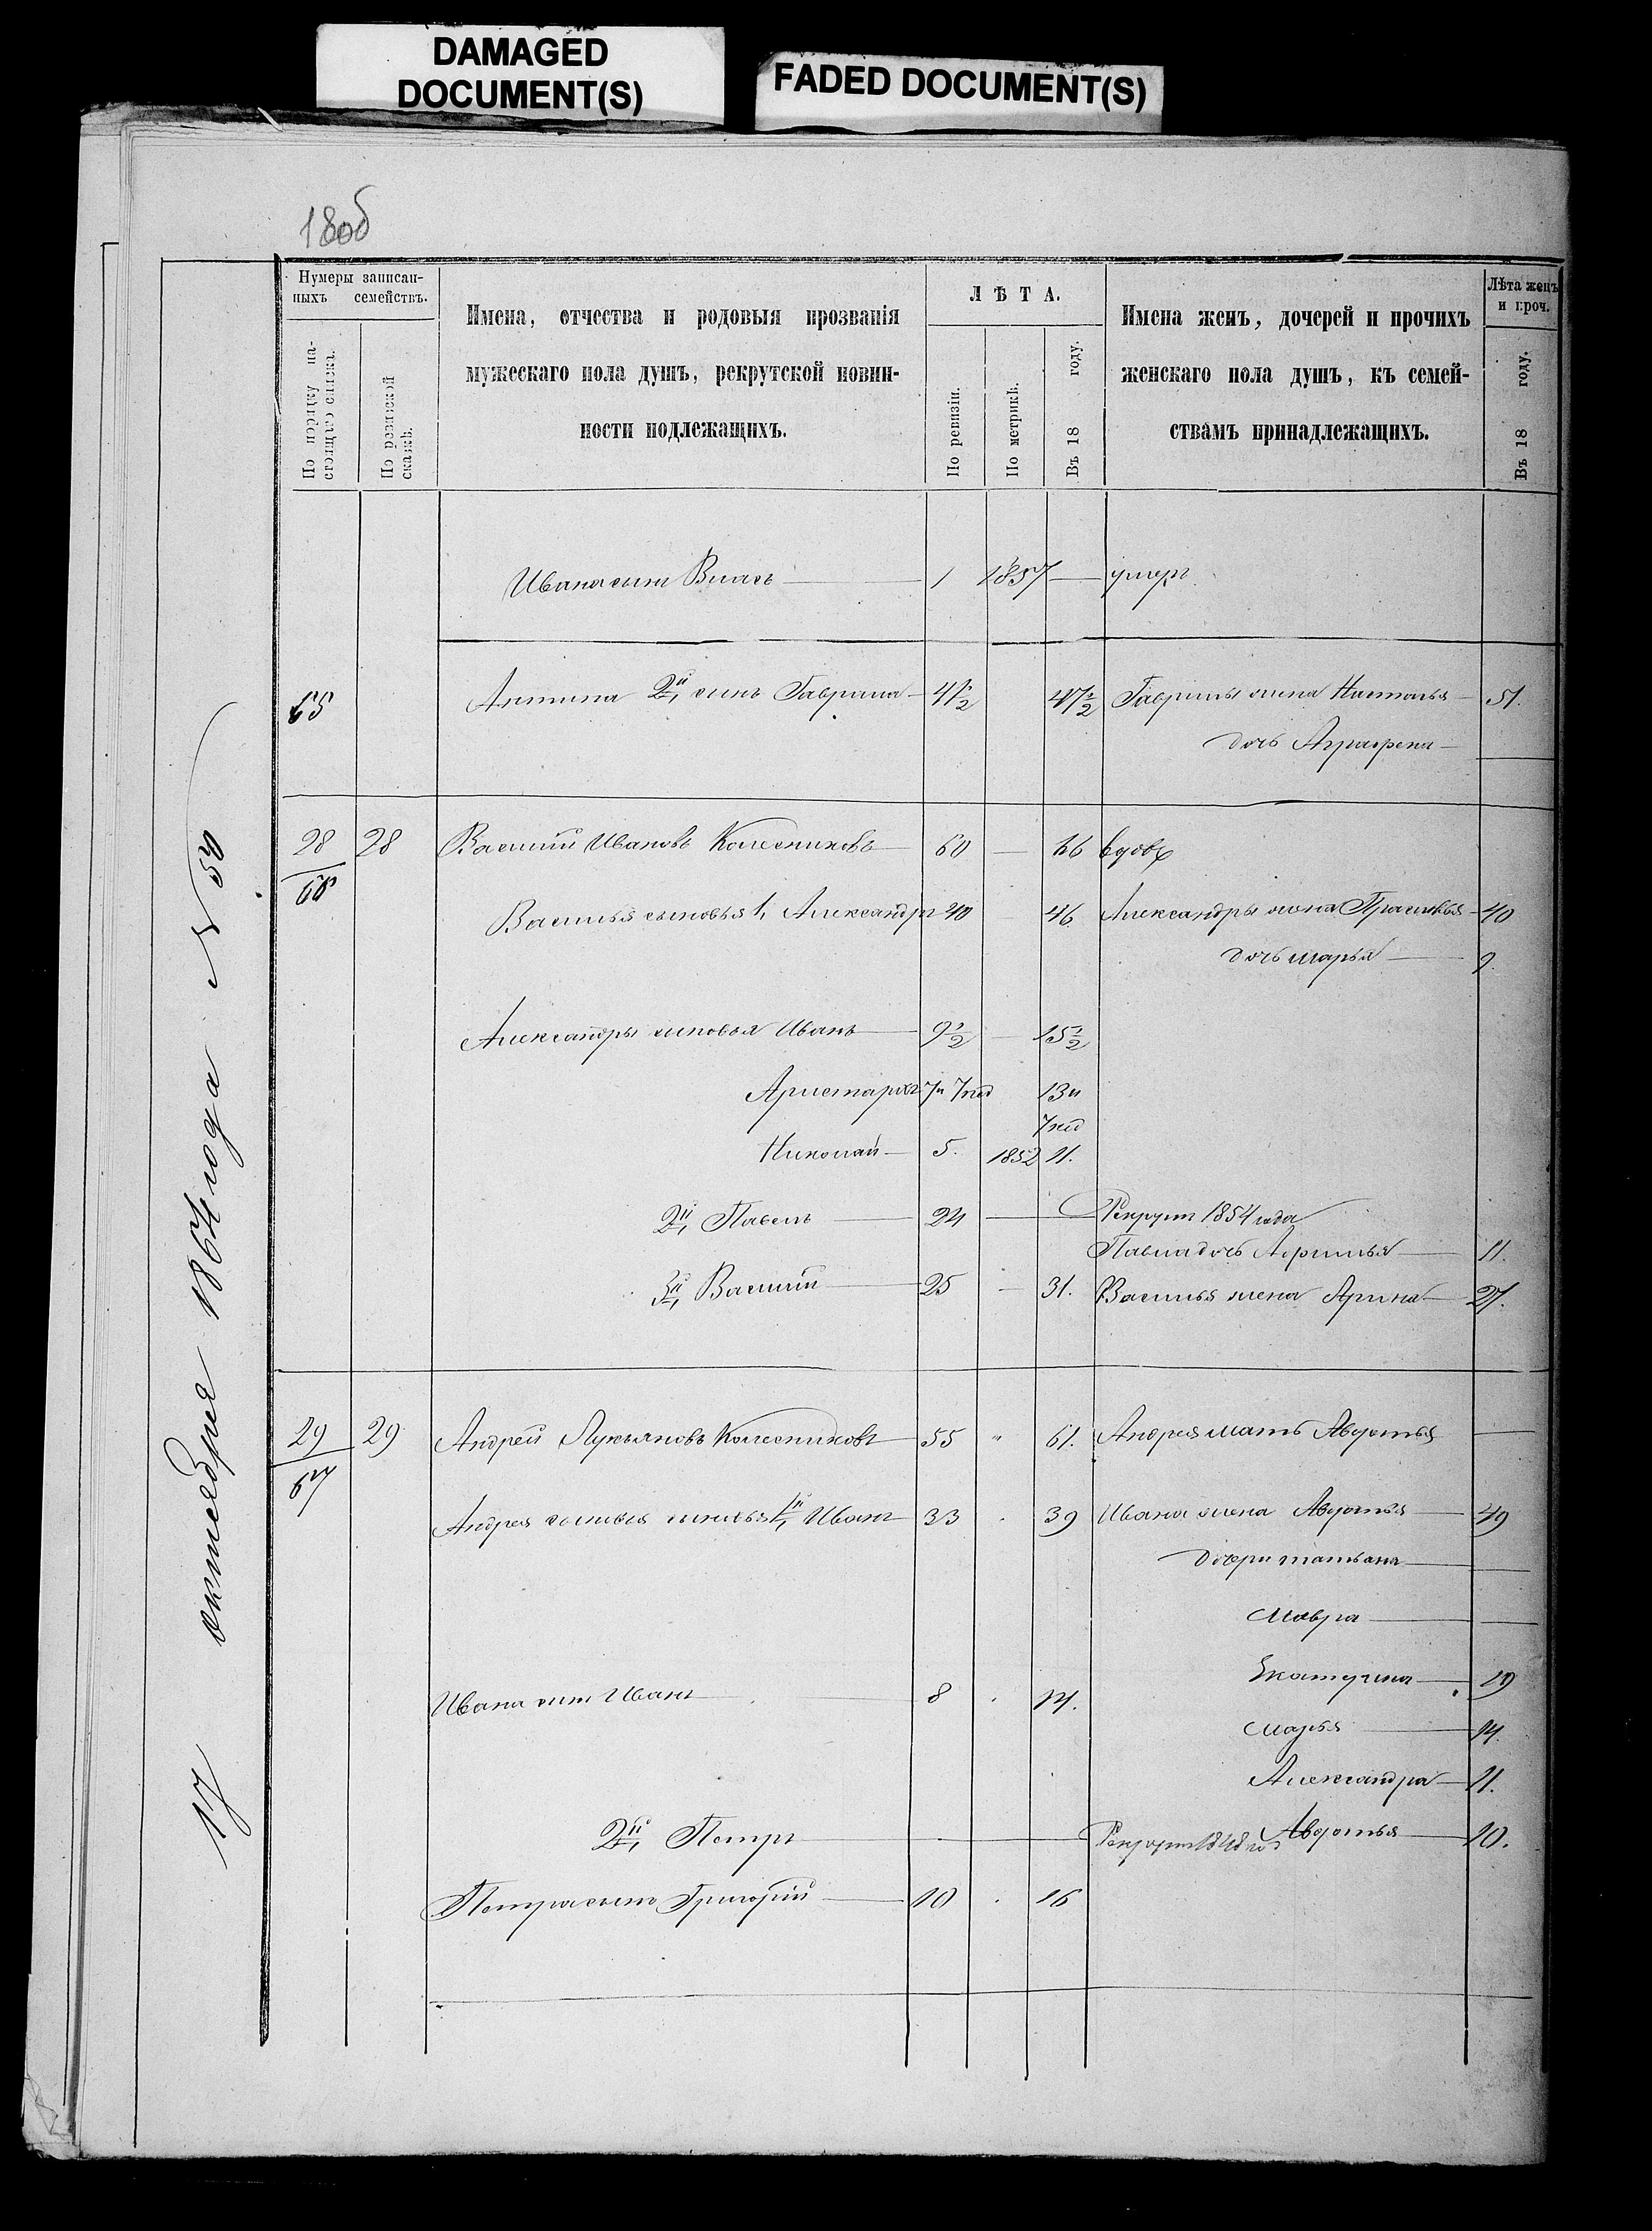 DAMAGED
DOCUMENT(S)
FADED DOCUMENT(S)
180об
Нумеры записан-
ныхъ семействъ.
По порядку на-
стоящаго списка.
По ревизской
сказкѣ.
Имена, отчества и родовыя прозванія
мужескаго пола душъ, рекрутской повин-
ности подлежащихъ.
ЛѢТА.
По ревизіи.
По метрикѣ.
Въ 18 году.
Имена женъ, дочерей и прочихъ
женскаго пола душъ, къ семей-
ствамъ принадлежащихъ.
Лѣта женъ
и проч.
Въ 18 году.
Ивана сынъ Власъ 1 1857 умеръ
65 Антипа 2й сынъ Гаврила 41½ 47½ Гаврилы жена Наталья 51.
дочь Аграфена
28 28 Василій Ивановъ Колесниковъ 60 66 вдовъ
66
Василья сыновья 1, Александръ 40 46. Александры жена Прасковья 40
дочь Марья 9.
Александры сыновья Иванъ 9½ 15½
Аристархъ 7 и 7 нед 13 и
7 нед
Николай 5. 1852 11.
2й Павелъ 24 Рекрутъ 1854 года
Павла дочь Афимья 11.
3й Василій 25 31. Василья жена Арина 27.
29 29 Андрей Лукьяновъ Колесниковъ 55 " 61. Андрея мать Авдотья
67
Андрея сыновья 1й Иванъ 33 39 Ивана жена Авдотья 49
дочери Татьяна
Мавра
Екатерина 19
Ивана сынъ Иванъ 8 14.
Марья 14.
Александра 11.
2й Петръ Рекрутъ Авдотья 10.
Петра сынъ Григорій 10 16
17 октября 1864 года № 50